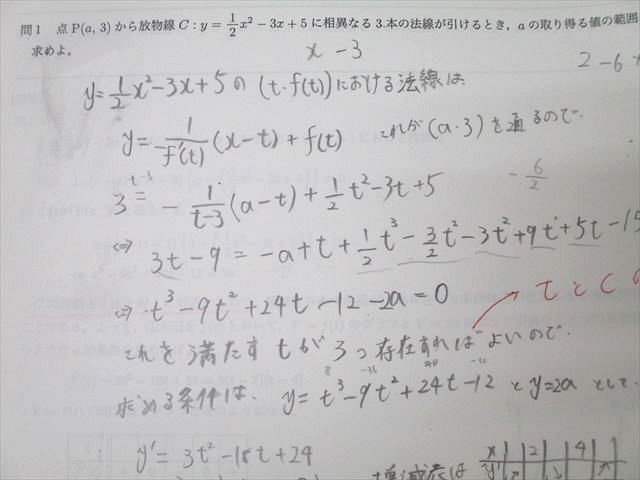 問1 点 P(a, 3) から放物線 C : y = 1/2 x² − 3x + 5 に相異なる 3 本の法線が引けるとき, a の取り得る値の範囲
求めよ.
x − 3
2 − 6 +
y = 1/2 x² − 3x + 5 の (t・f(t)) における法線は
y = 1/−f'(t) (x − t) + f(t) これが (a・3) を通るので.
t−3
3 = − 1/t−3 (a − t) + 1/2 t² − 3t + 5
− 6/2
⇔ 3t − 9 = −a + t + 1/2 t³ − 3/2 t² − 3t² + 9t + 5t − 15
⇔ t³ − 9t² + 24t − 12 − 2a = 0
tとC
これを満たす t が 3つ存在すればよいので.
8 −36 48 −12
求める条件は、 y = t³ − 9t² + 24t − 12 と y = 2a として
y' = 3t² − 18t + 24
増減表は
x 2 4
y'